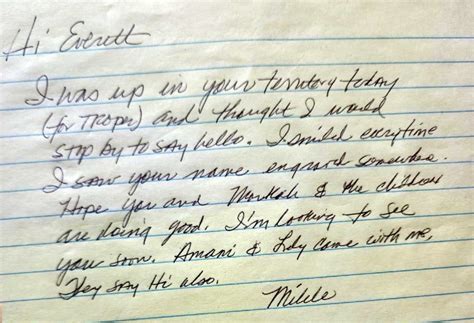 Hi Everett
I was up in your territory today
(for TROPER) and thought I would
stop by to say hello. I smiled everytime
I saw your name engraved somewhere.
Hope you and & the children
are doing good. I'm looking to see
you soon. Amani & Lily came with me,
They say Hi also.